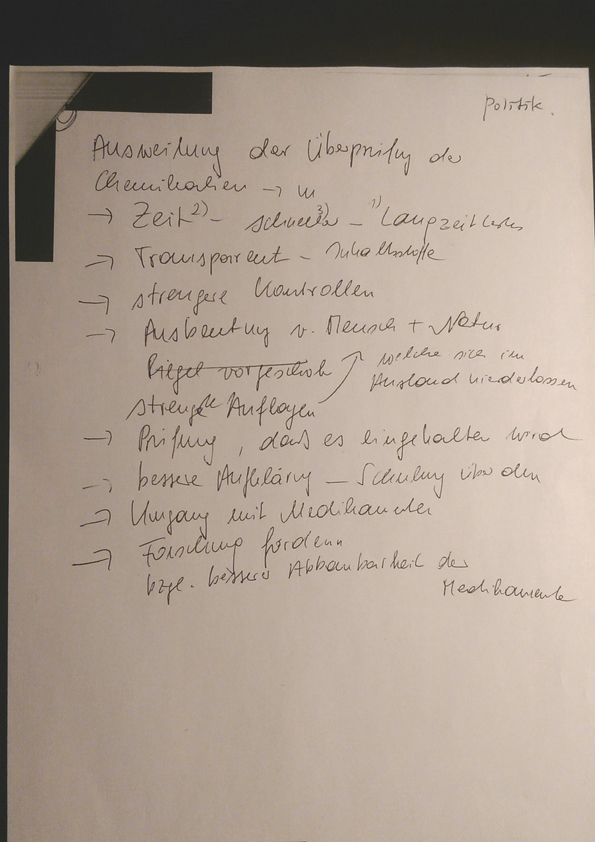 Politik.
Ausweitung der Überprüfung der
Chemikalien →
→ Zeit 2) – schneller 3) – 1) Langzeittests
→ Transparent – Inhaltsstoffe
→ strengere Kontrollen
→ Ausbeutung v. Mensch + Natur
Riegel vorgeschob
welche sich im
Ausland niederlassen
strenge Auflagen
→ Prüfung, dass es eingehalten wird
→ bessere Aufklärung – Schulung über den
→ Umgang mit Medikamenten
→ Forschung fördern
bzgl. besserer Abbaubarkeit der
Medikamente